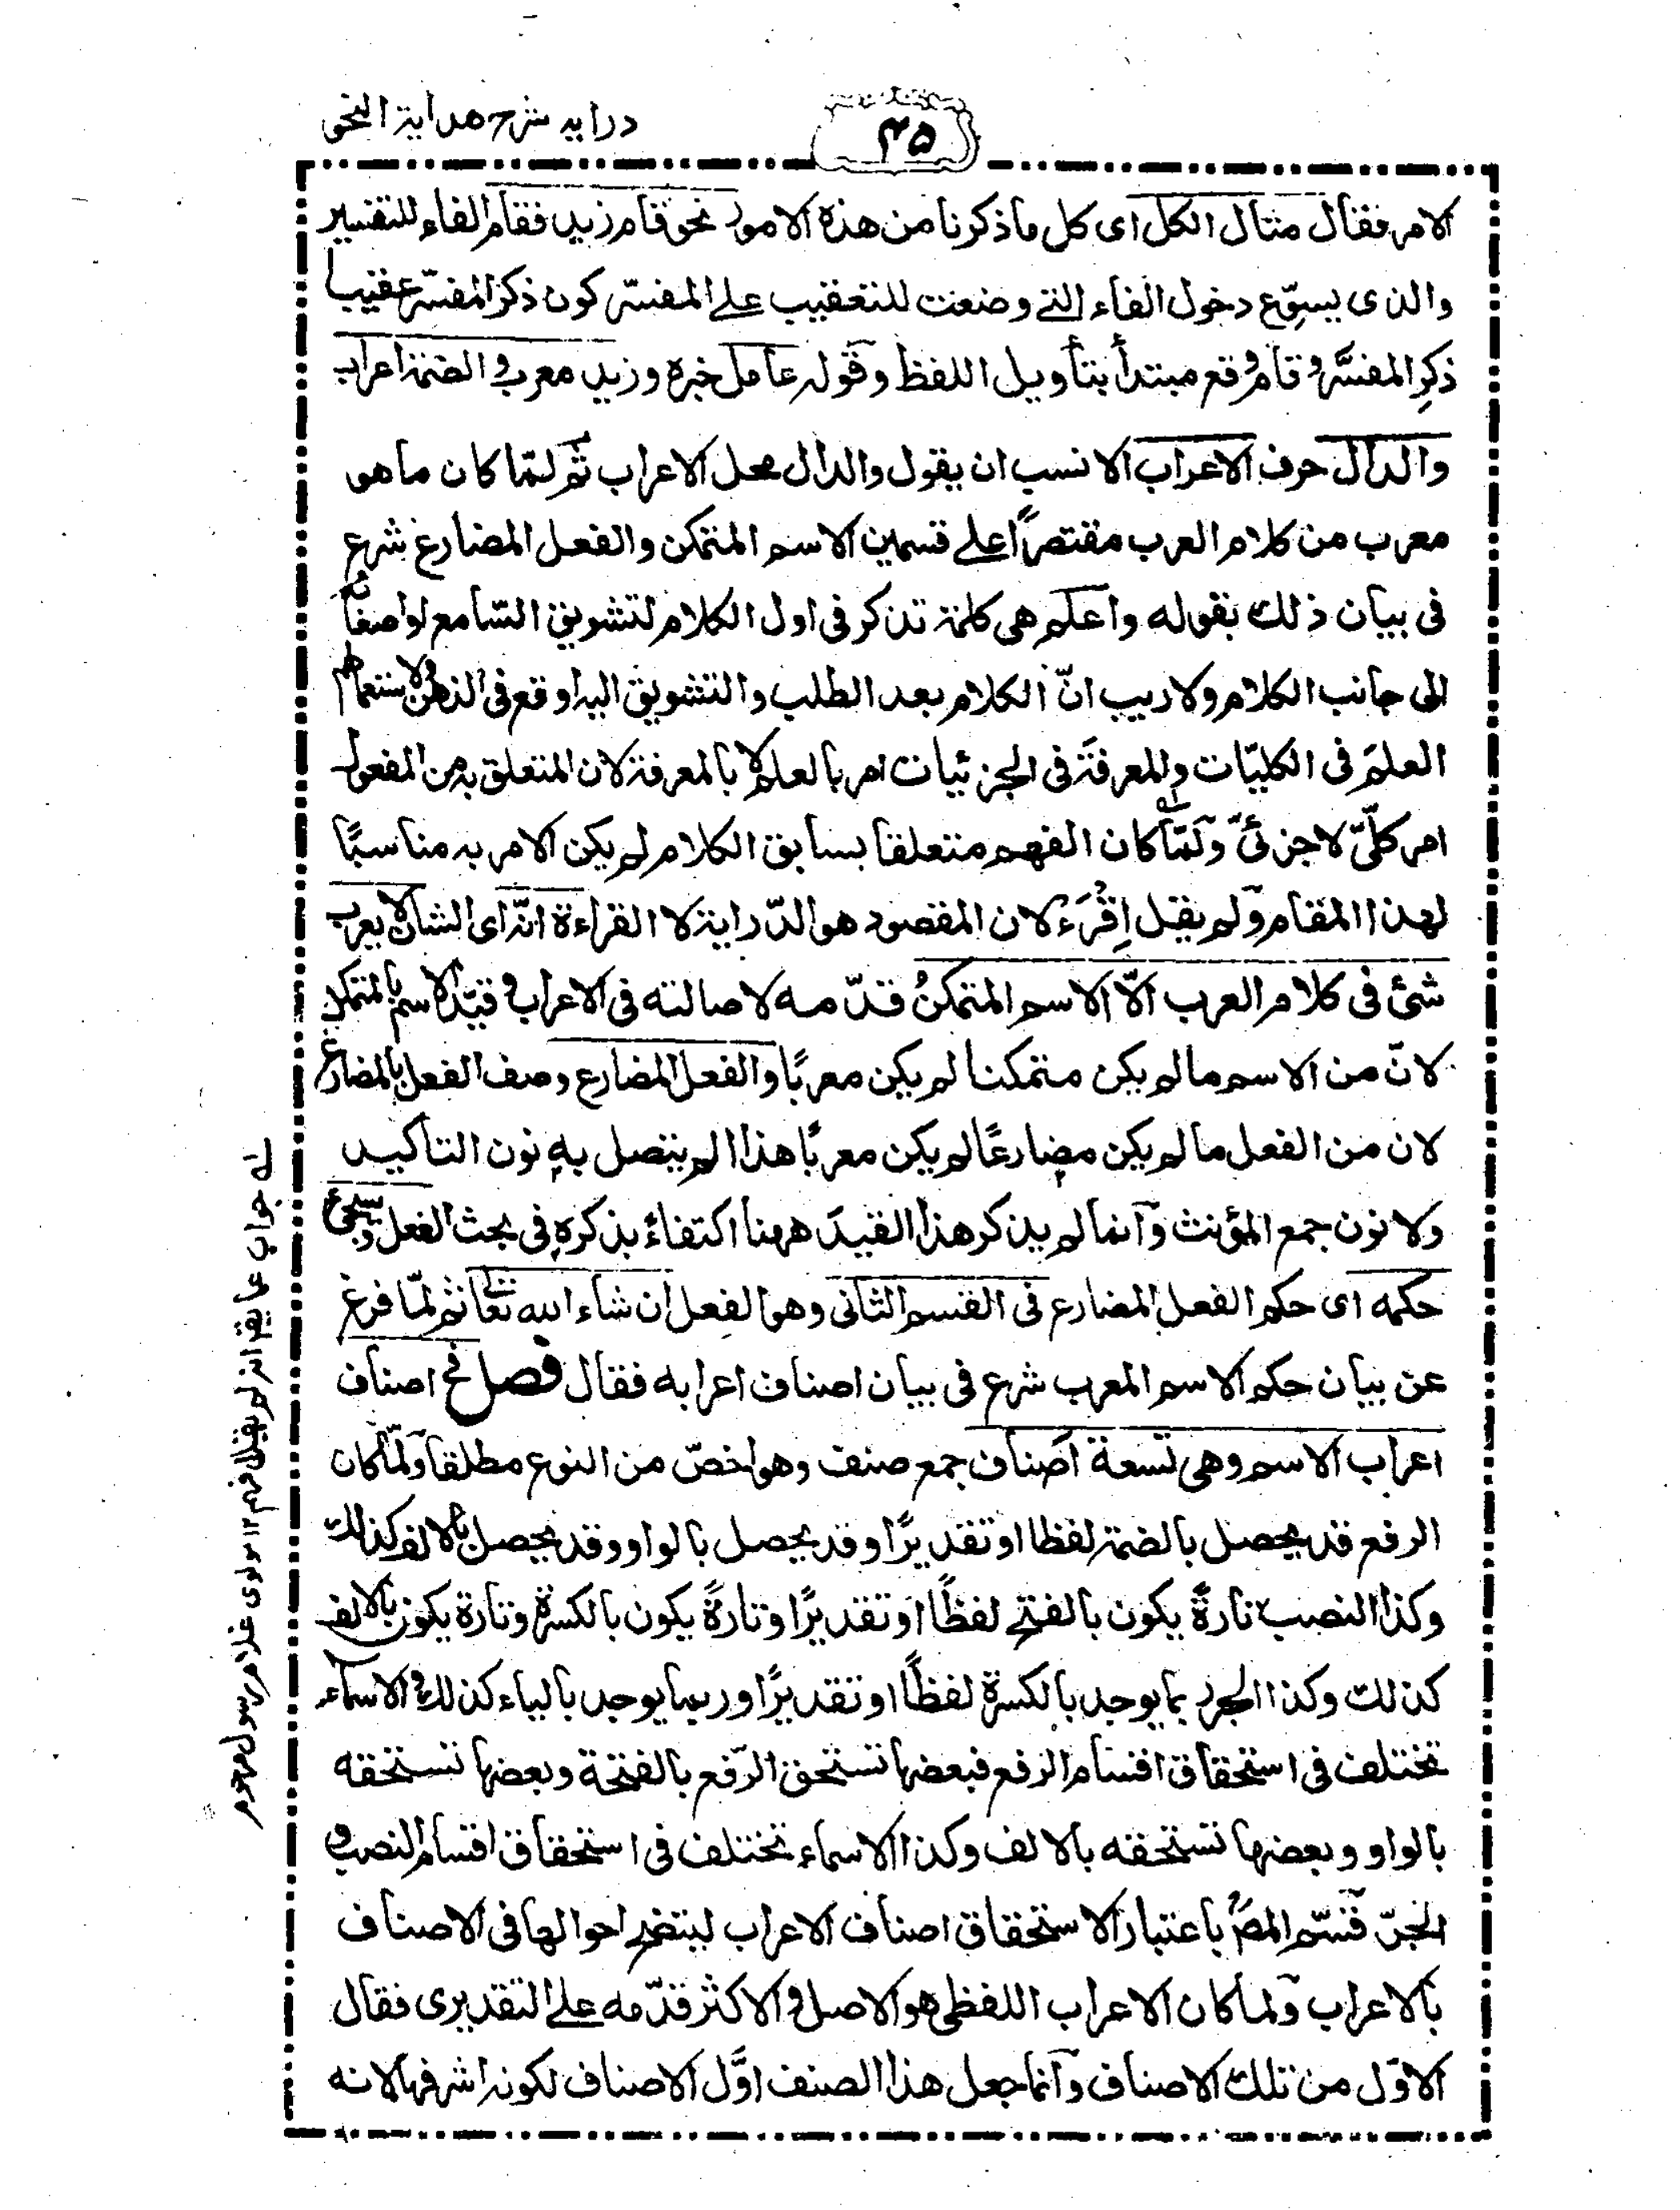 درایه شرح هدایة النحو
۴۵
الامر فقال مثال الکل ای کل ماذکرنا من هذه الامور نحو قام زید فقام الفاء للتفسیر
والذی یسوّغ دخول الفاء التے وضعت للتعقیب علے المفسّر کون ذکر المفسّر عقیب
ذکرِ المفسَّر و قام وقع مبتدأ بتأویل اللفظ وقوله عامل خبره وزید معرب والضمة اعراب
والدال حرف الاعراب الانسب ان یقول والدال محل الاعراب ثم لمّا کان ما هو
معرب من کلام العرب مقتصراً علے قسمین الاسم المتمکن والفعل المضارع شرع
فی بیان ذلك بقوله واعلم هی کلمة تذکر فی اول الکلام لتشویق السّامع
الی جانب الکلام ولا ریب انّ الکلام بعد الطلب والتشویق الیه اوقع فی الذهن ولاستعمالهم
العلم فی الکلیّات والمعرفة فی الجزئیات امر بالعلم لا بالمعرفة لان المتعلق به من المفعول
امر کلّیّ لا جزئیّ ولمّا کان الفهم متعلقا بسابق الکلام لم یکن الامر به مناسبًا
لهذا المقام ولم یقل اِقْرَء لان المقصود هو الدّرایة لا القراءة انّه ای الشان لا یعرب
شئ فی کلام العرب الّا الاسم المتمکنُ قدّمه لاصالته فی الاعراب و قیّد الاسم بالمتمکن
لانّ من الاسم مالم یکن متمکنا لم یکن معربًا والفعل المضارع وصف الفعل بالمضارع
لان من الفعل مالم یکن مضارعًا لم یکن معربًا هذا لم یتصل به نون التاکید
ولا نون جمع المؤنث وانما لم یذکر هذا القید ههنا اکتفاءً بذکرهِ فی بحث الفعل وسیجئ
حکمه ای حکم الفعل المضارع فی القسم الثانی وهو الفعل ان شاء الله تعا ثم لمّا فرغ
عن بیان حکم الاسم المعرب شرع فی بیان اصناف اعرابه فقال فصل فی اصناف
اعراب الاسم وهی تسعة اصناف جمع صنف وهو اخصّ من النوع مطلقا ولمّا کان
الرفع قد یحصل بالضمة لفظا او تقدیرًا وقد یحصل بالواو وقد یحصل بالالف کذلك
وکذا النصب تارةً یکون بالفتح لفظًا او تقدیرًا وتارةً یکون بالکسرة وتارة یکون بالالف
کذلك وکذا الجر ربما یوجد بالکسرة لفظًا او تقدیرًا وربما یوجد بالیاء کذلك والاسماء
تختلف فی استحقاق اقسام الرفع فبعضها تستحق الرّفع بالفتحة وبعضها تستحقه
بالواو وبعضها تستحقه بالالف وکذا الاسماء تختلف فی استحقاق اقسام النصب و
الجرّ قسّم المصؒ باعتبار الاستحقاق اصناف الاعراب لیتضح احوالها فی الاصناف
بالاعراب ولما کان الاعراب اللفظی هو الاصل والاکثر قدّمه علے التقدیری فقال
الاوّل من تلك الاصناف وانما جعل هذا الصنف اوّل الاصناف لکونه اشرفها لانه
لے جواب عما یقم انه لم یقل افهم ۱۲ مولوی غلام رسول مرحوم